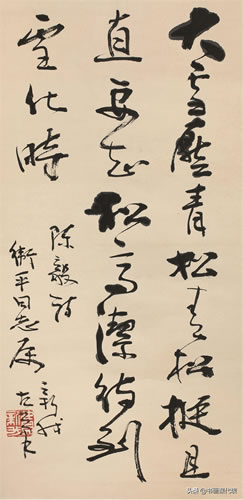 大雪压青松青松挺且
直要知松高洁待到
雪化時
陈毅诗
衛平同志属
头条@书画微代表